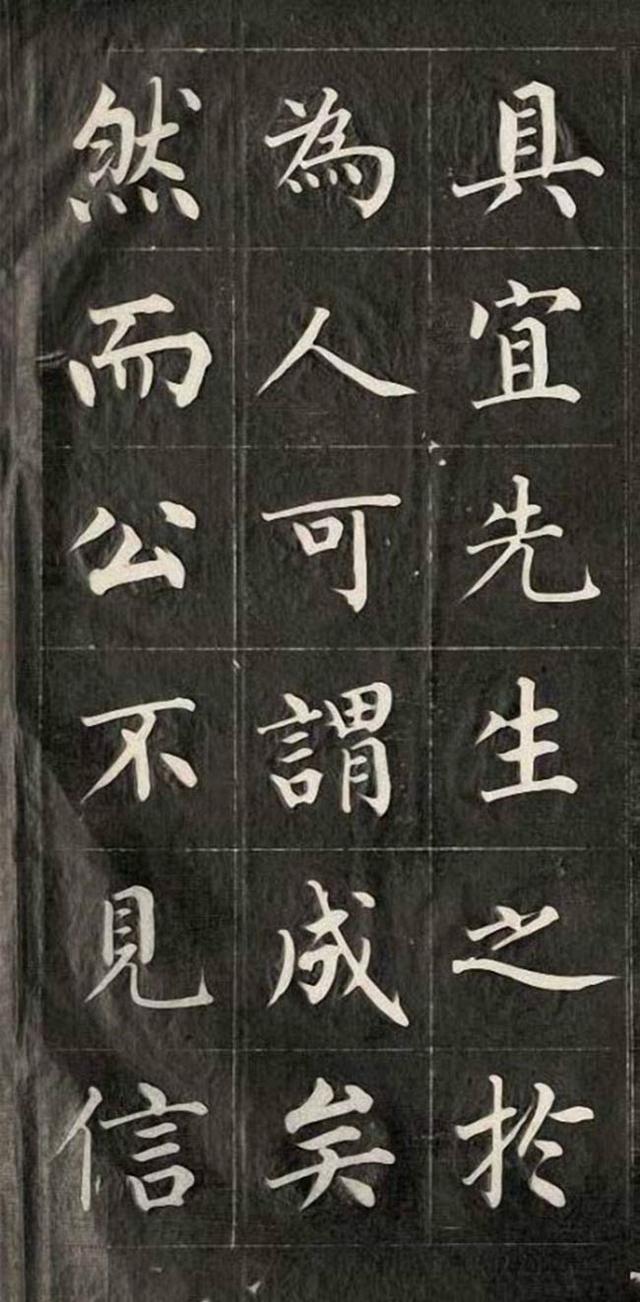 具宜先生之於
為人可謂成矣
然而公不見信